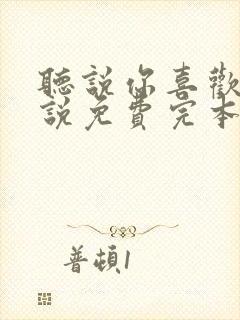 聽說你喜歡
說免費完本
普頓1